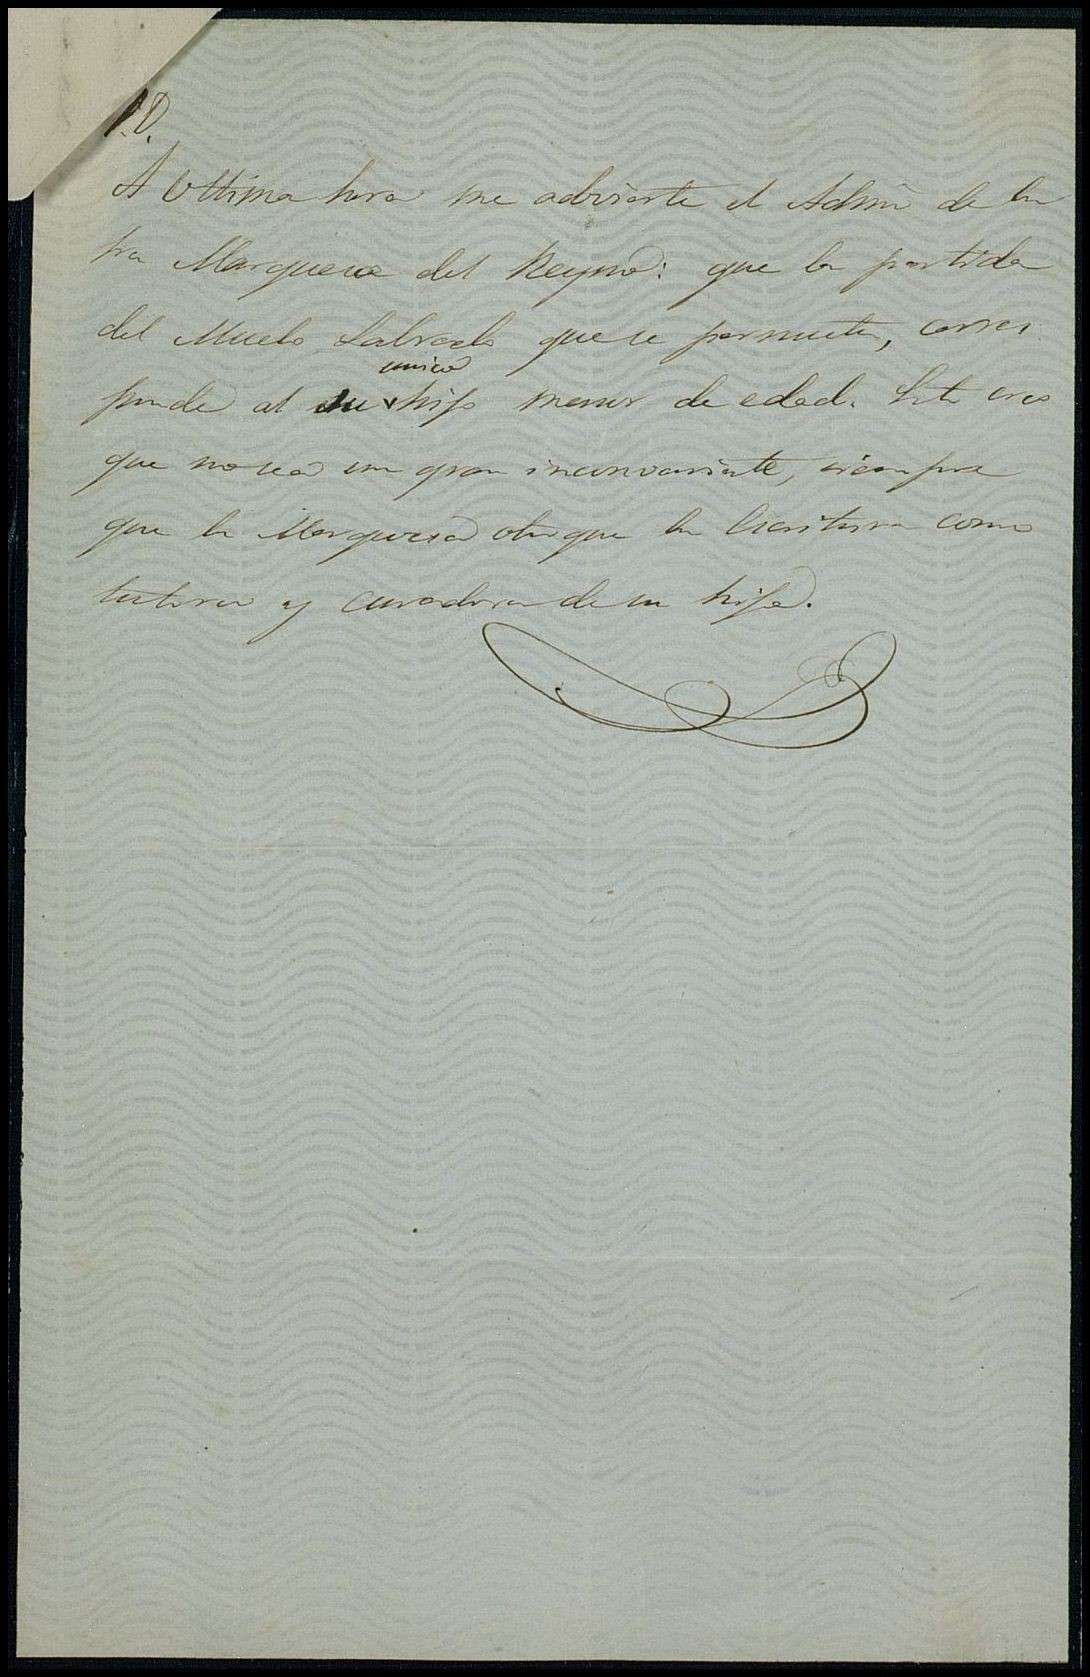 P.D.
A ultima hora me advierte el Admor de la
Sra Marquesa del Reyno: que la partida
del Muelo Labrado que se permuta, corres
ponde al su unico hijo menor de edad. Esto creo
que no sea un gran inconveniente, siempre
que la Marquesa otorgue la Escritura como
tutora y curadora de su hijo.